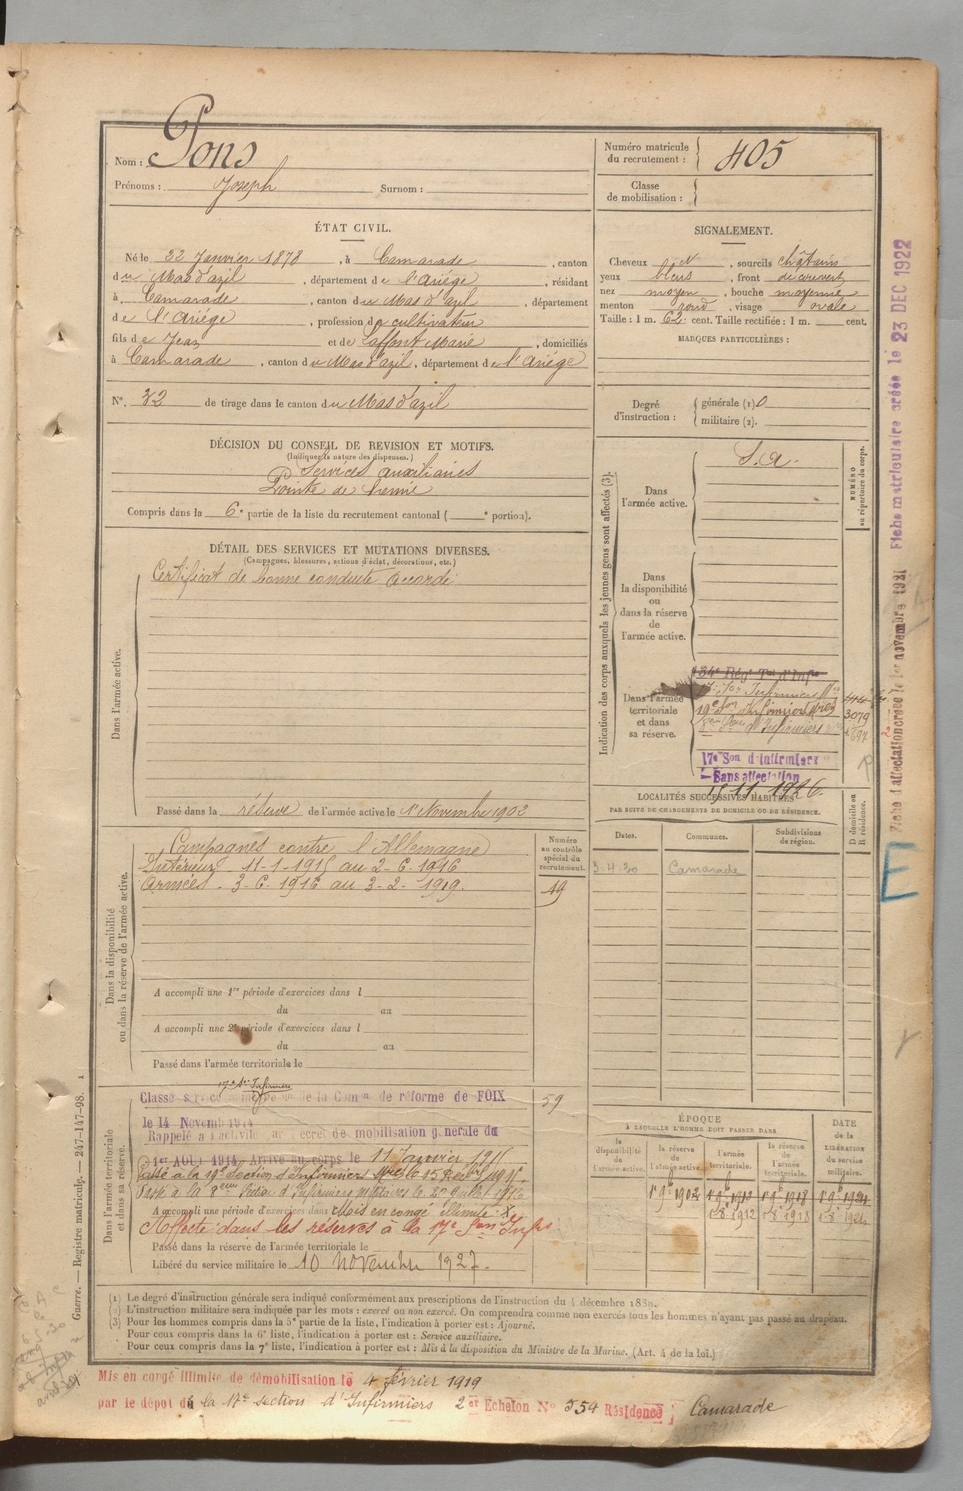 Nom : Pons
Prénoms : Joseph Surnom :
Numéro matricule du recrutement : 405
Classe de mobilisation :
ÉTAT CIVIL.
Né le 22 Janvier 1878, à Camarade, canton
du Mas d'azil, département de l'Ariège, résidant
à Camarade, canton du Mas d'azil, département
de l'Ariège, profession de cultivateur
fils de Jean et de Laffont Marie, domiciliés
à Camarade, canton du Mas d'azil, département de l'Ariège
N° 32 de tirage dans le canton du Mas d'azil
SIGNALEMENT.
Cheveux , sourcils châtains
yeux bleus, front découvert
nez moyen, bouche moyenne
menton rond, visage ovale
Taille : 1 m. 62 cent. Taille rectifiée : 1 m. cent.
MARQUES PARTICULIÈRES :
Degré d'instruction : générale (1) 0
militaire (2).
DÉCISION DU CONSEIL DE REVISION ET MOTIFS.
(Indiquer la nature des dispenses.)
Services auxiliaires
Pointe de hernie
Compris dans la 6e partie de la liste du recrutement cantonal ( e portion).
DÉTAIL DES SERVICES ET MUTATIONS DIVERSES.
(Campagnes, blessures, actions d'éclat, décorations, etc.)
Dans l'armée active.
Certificat de bonne conduite accordé
Passé dans la réserve de l'armée active le 1er Novembre 1902
Indication des corps auxquels les jeunes gens sont affectés (3).
NUMÉRO au répertoire du corps.
Dans l'armée active.
S.a.
Dans la disponibilité ou dans la réserve de l'armée active.
Dans l'armée territoriale et dans sa réserve.
134e Régt Tal d'Infie
3079
17e Son d'Infirmiers
Sans affectation
LOCALITÉS SUCCESSIVES HABITÉES
PAR SUITE DE CHANGEMENTS DE DOMICILE OU DE RÉSIDENCE.
Dates. Communes. Subdivisions de région. D domicile ou R résidence.
3.4.30 Camarade
Dans la disponibilité ou dans la réserve de l'armée active.
Numéro au contrôle spécial du recrutement.
Campagnes contre l'Allemagne
Intérieur 11-1-1915 au 2-6-1916
Armées - 3-6-1916 au 3-2-1919.
19
A accompli une 1re période d'exercices dans l
du au
A accompli une 2e période d'exercices dans l
du au
Passé dans l'armée territoriale le
Dans l'armée territoriale et dans sa réserve.
Classé service de la Comon de réforme de FOIX
59
le 14 Novembre 1914
Rappelé à l'activité par décret de mobilisation générale du
1er AOUT 1914 Arrivé au corps le 11 Janvier 1915
Passé à la 19e Section d'Infirmiers
Passé à la 8eme Section d'Infirmiers Militaires le
A accompli une période d'exercices dans
Affecté dans les réserves à la 17e Son Infrs
Passé dans la réserve de l'armée territoriale le
Libéré du service militaire le 10 Novembre 1927.
ÉPOQUE
A LAQUELLE L'HOMME DOIT PASSER DANS
la disponibilité de l'armée active.
la réserve de l'armée active.
l'armée territoriale.
la réserve de l'armée territoriale.
DATE de la LIBÉRATION du service militaire.
(1) Le degré d'instruction générale sera indiqué conformément aux prescriptions de l'instruction du 4 décembre 1889.
(2) L'instruction militaire sera indiquée par les mots : exercé ou non exercé. On comprendra comme non exercés tous les hommes n'ayant pas passé au drapeau.
(3) Pour les hommes compris dans la 5e partie de la liste, l'indication à porter est : Ajourné.
Pour ceux compris dans la 6e liste, l'indication à porter est : Service auxiliaire.
Pour ceux compris dans la 7e liste, l'indication à porter est : Mis à la disposition du Ministre de la Marine. (Art. 4 de la loi.)
Mis en congé illimité de démobilisation le 4 février 1919
par le dépôt de la 17e section d'Infirmiers 2er Echelon N° 354 Résidence : Camarade
Guerre. — Registre matricule. — 247-147-98.
Fiche matriculaire créée le 23 DEC 1922
E